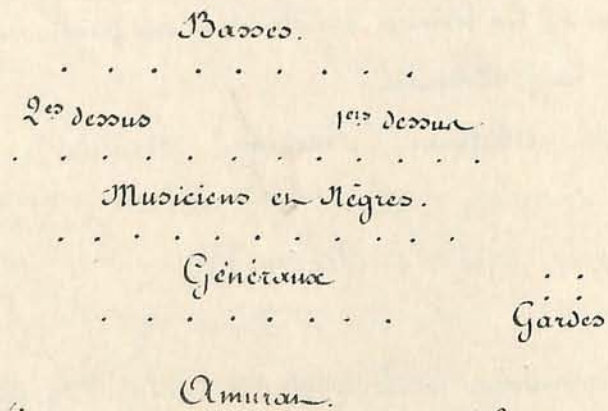 Basses.
2es dessus 1ers dessus
Musiciens et Nègres.
Généraux
Gardes
Amurat.